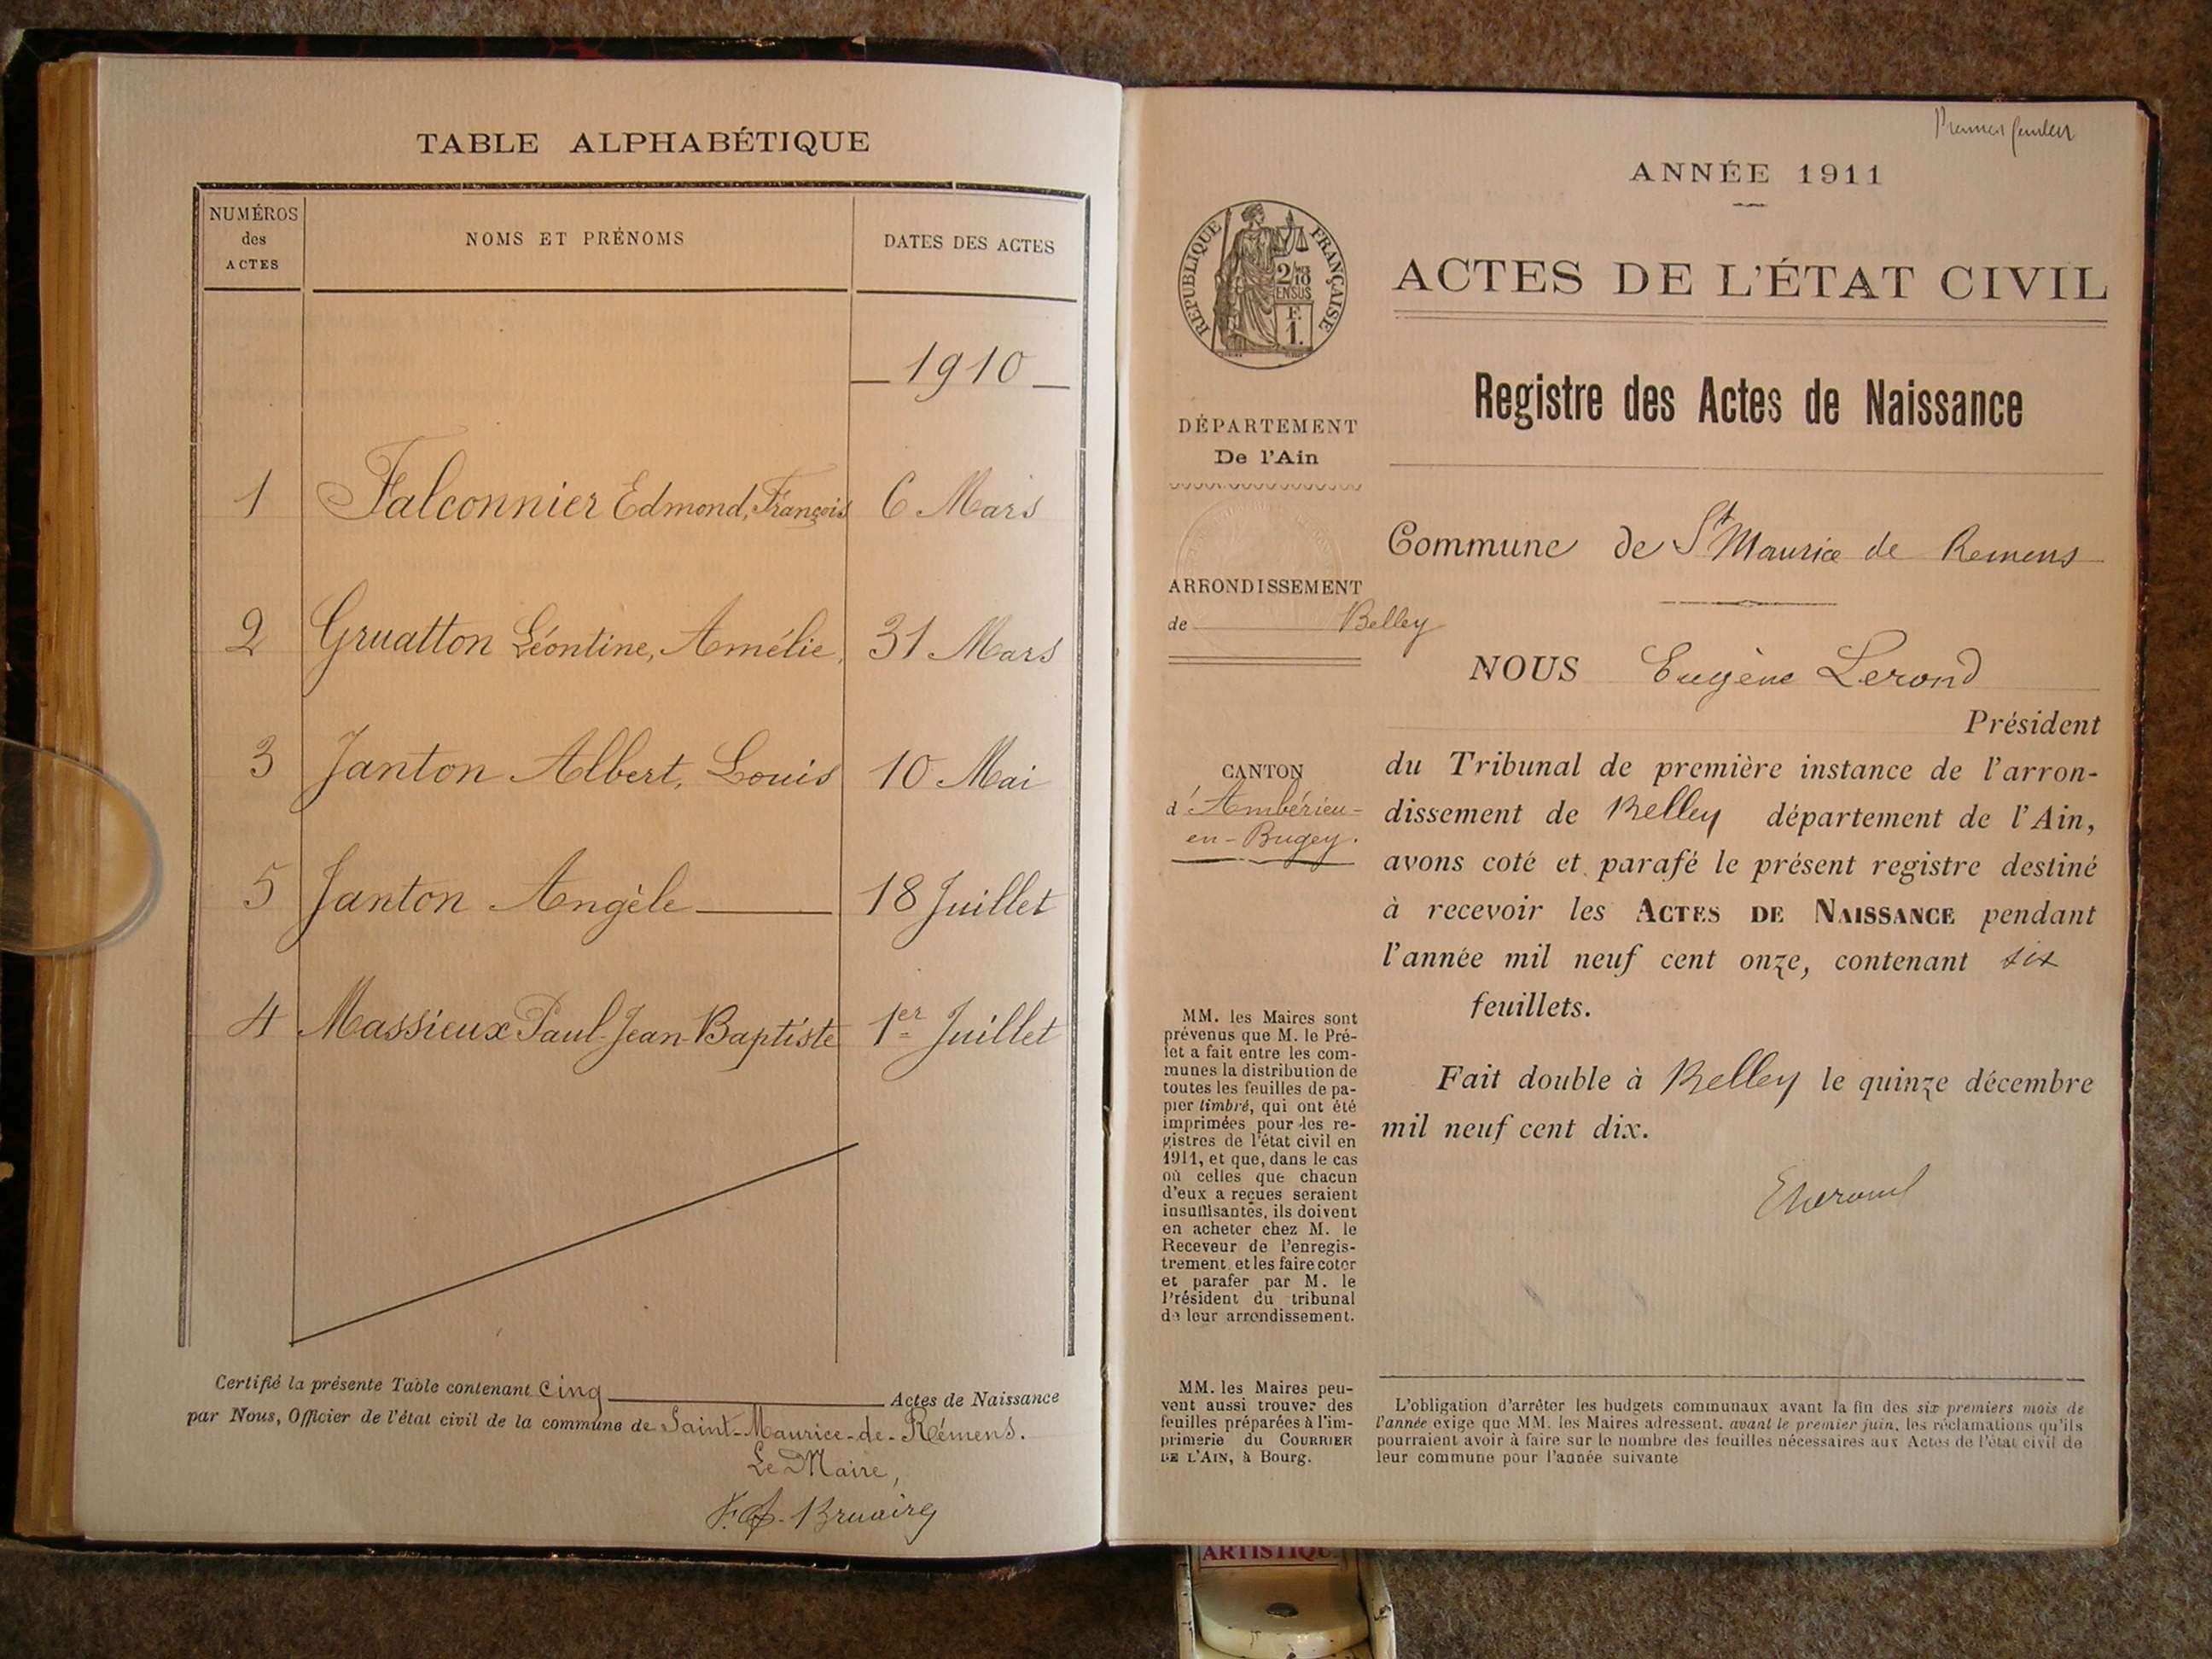 TABLE ALPHABÉTIQUE
NUMÉROS des ACTES
NOMS ET PRÉNOMS
DATES DES ACTES
1910
1 Falconnier Edmond, François 6 Mars
2 Gruatton Léontine, Amélie, 31 Mars
3 Janton Albert, Louis 10 Mai
5 Janton Angèle 18 Juillet
4 Massieux Paul-Jean-Baptiste 1er Juillet
Certifié la présente Table contenant cinq Actes de Naissance
par Nous, Officier de l'état civil de la commune de Saint-Maurice-de-Rémens.
Le Maire,
Premier feuillet
ANNÉE 1911
RÉPUBLIQUE FRANÇAISE
2/10
EN SUS
F.
1.
ACTES DE L'ÉTAT CIVIL
Registre des Actes de Naissance
DÉPARTEMENT
De l'Ain
ARRONDISSEMENT
de Belley
CANTON
d'Ambérieu-
en-Bugey.
Commune de St Maurice de Remens
NOUS Eugène Lerond
Président
du Tribunal de première instance de l'arron-
dissement de Belley département de l'Ain,
avons coté et parafé le présent registre destiné
à recevoir les ACTES DE NAISSANCE pendant
l'année mil neuf cent onze, contenant six
feuillets.
Fait double à Belley le quinze décembre
mil neuf cent dix.
MM. les Maires sont
prévenus que M. le Pré-
fet a fait entre les com-
munes la distribution de
toutes les feuilles de pa-
pier timbré, qui ont été
imprimées pour les re-
gistres de l'état civil en
1911, et que, dans le cas
où celles que chacun
d'eux a reçues seraient
insuffisantes, ils doivent
en acheter chez M. le
Receveur de l'enregis-
trement et les faire coter
et parafer par M. le
Président du tribunal
de leur arrondissement.
MM. les Maires peu-
vent aussi trouver des
feuilles préparées à l'im-
primerie du COURRIER
DE L'AIN, à Bourg.
L'obligation d'arrêter les budgets communaux avant la fin des six premiers mois de
l'année exige que MM. les Maires adressent, avant le premier juin, les réclamations qu'ils
pourraient avoir à faire sur le nombre des feuilles nécessaires aux Actes de l'état civil de
leur commune pour l'année suivante
ARTISTIQU